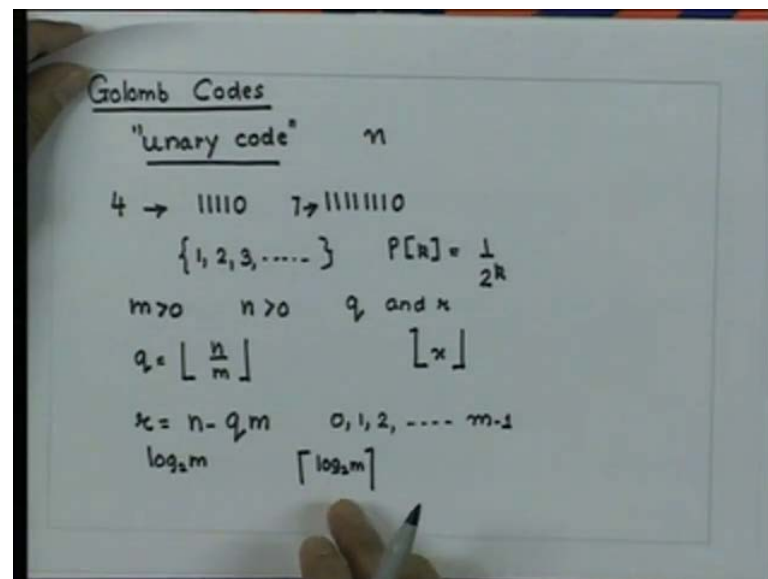 Golomb Codes
"unary code" n
4 → 11110 7→11111110
{1, 2, 3, ..... } P[k] = 1/2^k
m>0 n>0 q and r
q = ⌊ n/m ⌋ ⌊x⌋
r = n - qm 0, 1, 2, .... m-1
log₂m ⌈log₂m⌉